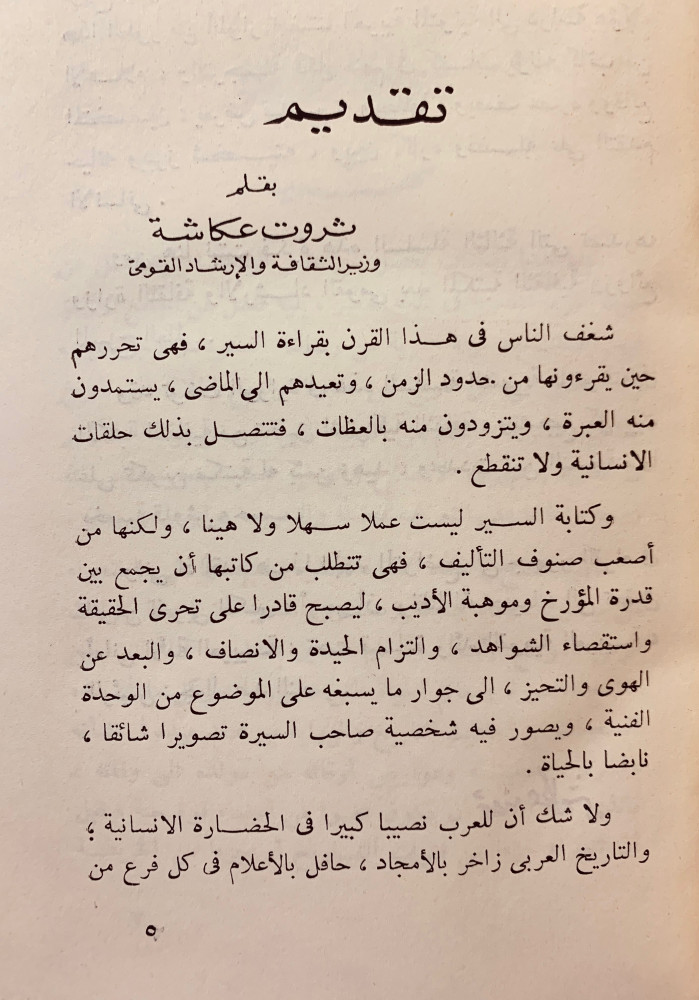 تقديم
بقلم
ثروت عكاشة
وزير الثقافة والإرشاد القومى
شغف الناس فى هذا القرن بقراءة السير ، فهى تحررهم
حين يقرءونها من حدود الزمن ، وتعيدهم الى الماضى ، يستمدون
منه العبرة ، ويتزودون منه بالعظات ، فتتصل بذلك حلقات
الانسانية ولا تنقطع .
وكتابة السير ليست عملا سهلا ولا هينا ، ولكنها من
أصعب صنوف التأليف ، فهى تتطلب من كاتبها أن يجمع بين
قدرة المؤرخ وموهبة الأديب ، ليصبح قادرا على تحرى الحقيقة
واستقصاء الشواهد ، والتزام الحيدة والانصاف ، والبعد عن
الهوى والتحيز ، الى جوار ما يسبغه على الموضوع من الوحدة
الفنية ، ويصور فيه شخصية صاحب السيرة تصويرا شائقا ،
نابضا بالحياة .
ولا شك أن للعرب نصيبا كبيرا فى الحضارة الانسانية ،
والتاريخ العربى زاخر بالأمجاد ، حافل بالأعلام فى كل فرع من
٥